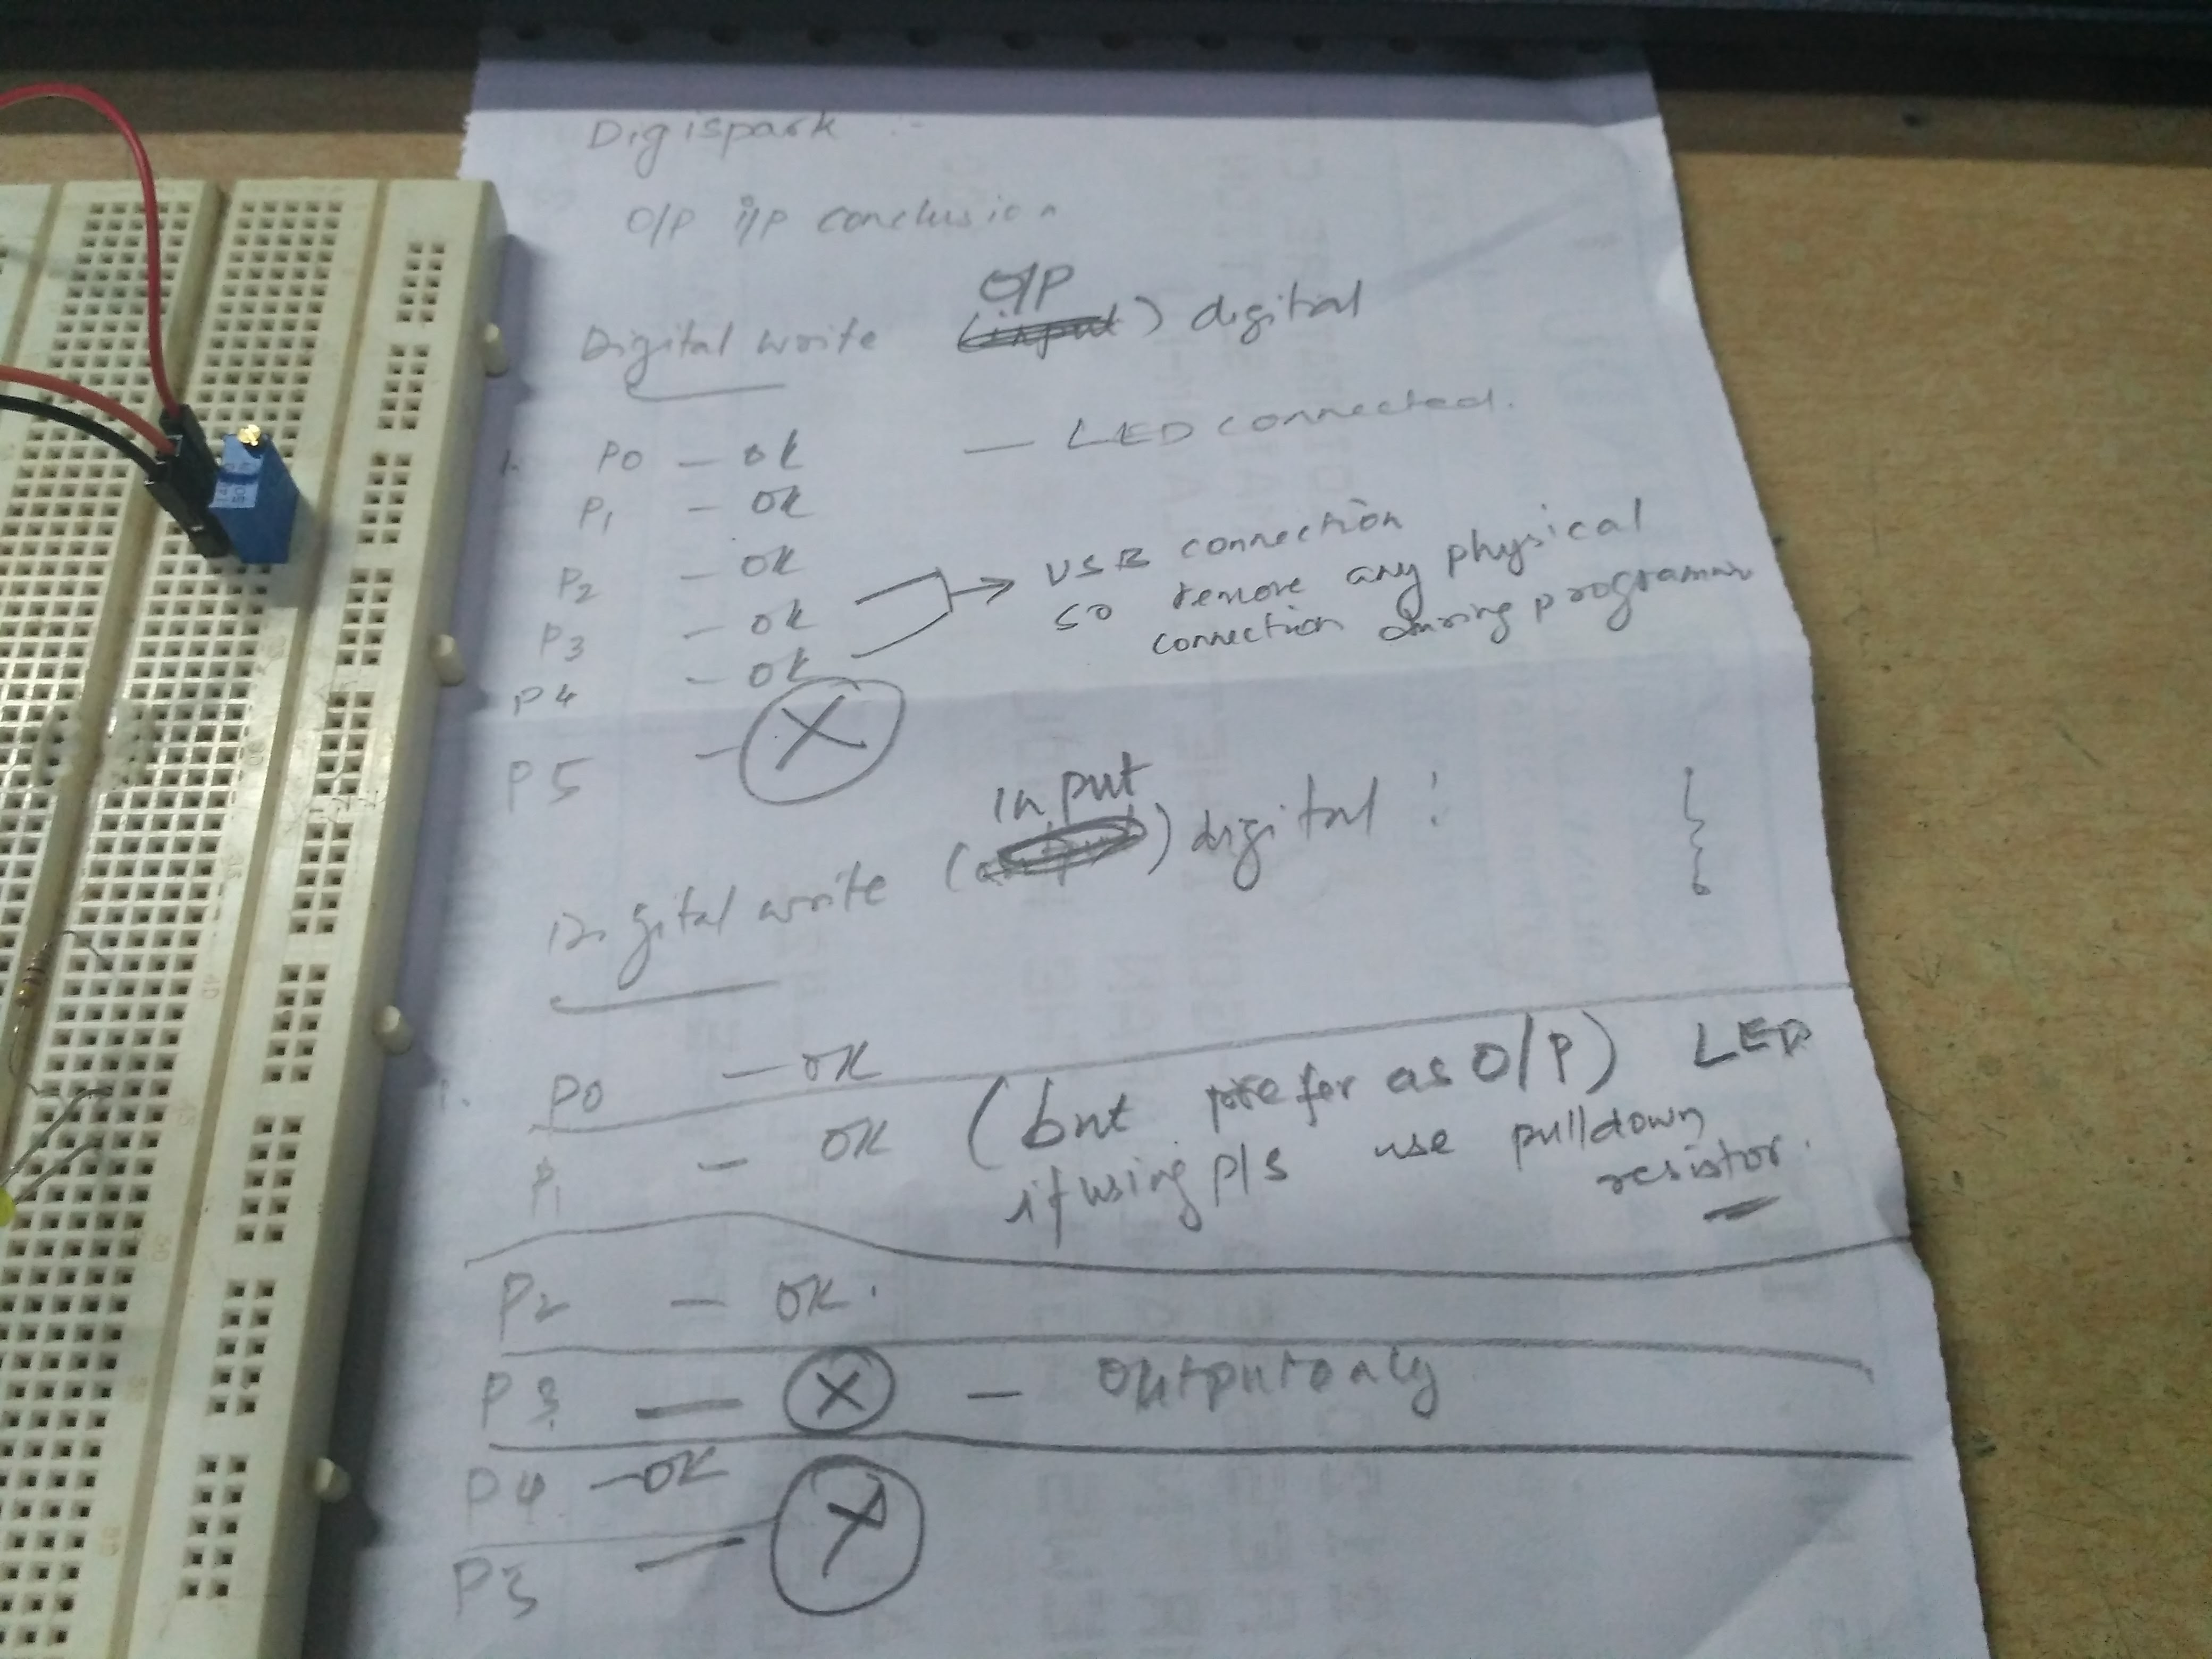 Digispark :-
O/P i/p conclusion
O/P
Digital write (input) digital
1. P0 - ok - LED connected.
P1 - OK
P2 - OK
P3 - ok
P4 - ok
USB connection
so remove any physical
connection during programmin
P5 - X
input
Digital write ( ) digital :
1. P0 - OK
P1 - OK (but prefer as O/P) LED
if using P/S use pulldown
resistor.
P2 - OK.
P3 - X - output only
P4 - OK
P5 - X